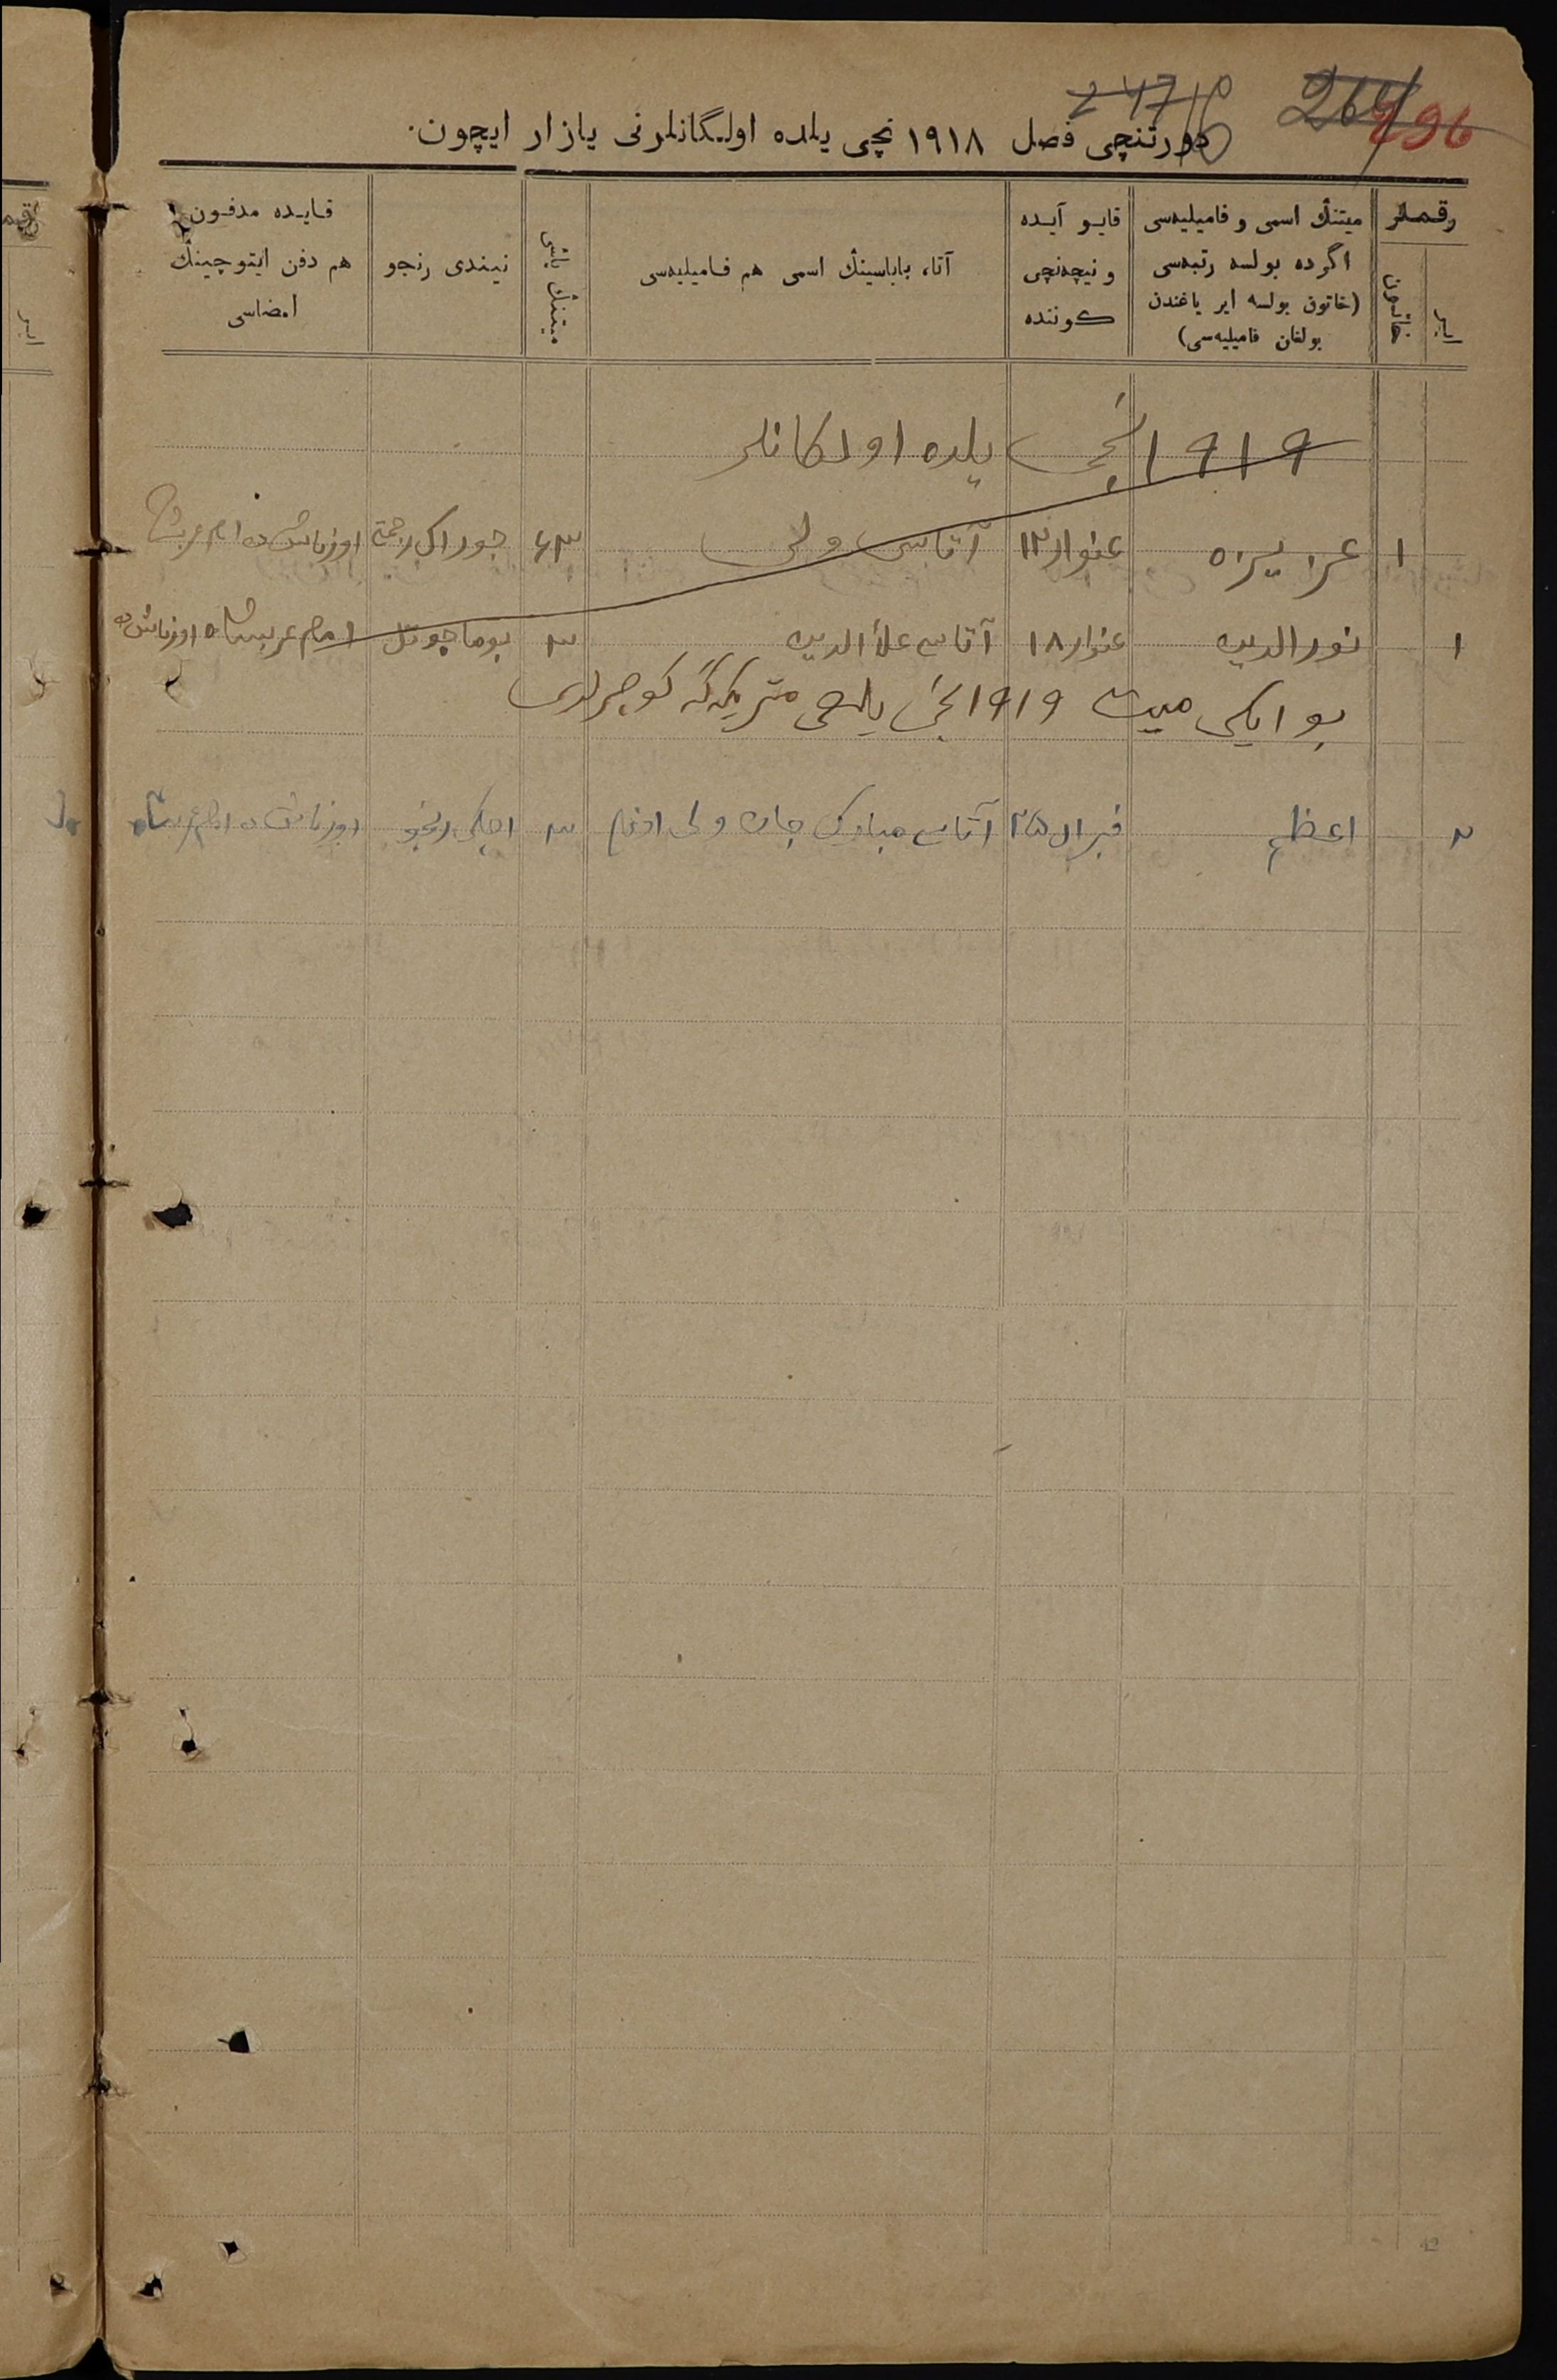 247
264
296
دورتنچی فصل ۱۹۱۸ نچی یلده اولگانلرنی یازار ایچون.
رقملر
ایر
خاتون
میتنڭ اسمی و فامیلیه‌سی
اگرده بولسه رتبه‌سی
(خاتون بولسه ایر یاغندن
بولغان فامیلیه‌سی)
قایو آیده
و نیچه‌نچی
کوننده
آتا، باباسینڭ اسمی هم فامیلیه‌سی
میتنڭ یاشی
نیندی رنجو
قایده مدفون
هم دفن ایتوچینڭ
امضاسی
۱۹۱۹ نچی یلده اولکانلر
۱ عزیزه عنوار ۱۳ آتاسی ولی ۶۳
۱ نورالدین عنوار ۱۸ آتاسی علاٴالدین ۳ بوما جوتل امام عربشاه اوزیاش ده
بو ایکی میت ۱۹۱۹ نچی یلغی متریکه‌گه کوچرلدی
۲ اعظم فبرال ۲۵ آتاسی مبارک جان ولی اوغلی ۳ اچکی رنجو
42